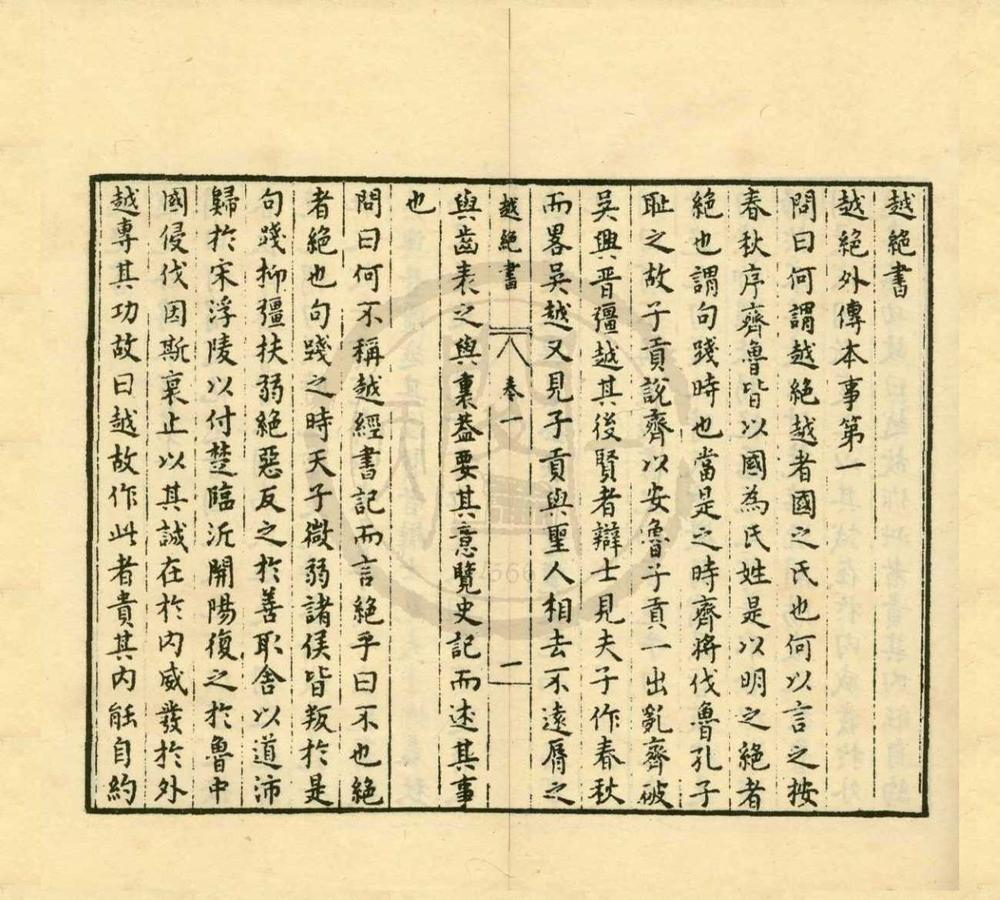 越絕書
越絕外傳本事第一
問曰何謂越絕越者國之氏也何以言之按
春秋序齊魯皆以國為氏姓是以明之絕者
絕也謂句踐時也當是之時齊將伐魯孔子
恥之故子貢說齊以安魯子貢一出亂齊破
吳興晉彊越其後賢者辯士見夫子作春秋
而畧吳越又見子貢與聖人相去不遠脣之
越絕書 卷一 二
與齒表之與裏蓋要其意覽史記而述其事
也
問曰何不稱越經書記而言絕乎曰不也絕
者絕也句踐之時天子微弱諸侯皆叛於是
句踐抑彊扶弱絕惡反之於善取舍以道沛
歸於宋浮陵以付楚臨沂開陽復之於魯中
國侵伐因斯衰止以其誠在於內威發於外
越專其功故曰越故作此者貴其內能自約